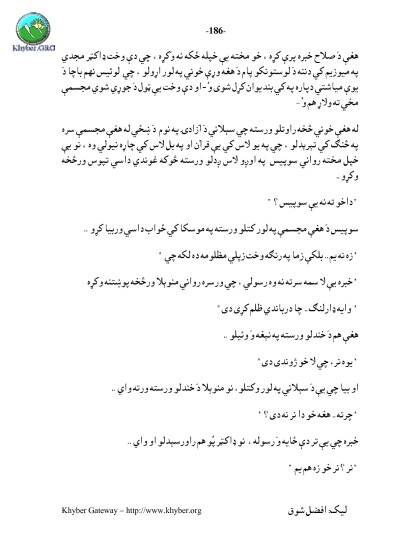 Khyber.ORG
-186-
هغې دَ صلاح خبره پرې کړه ، خو مخته يې خپله ځکه نه وکړه ، چې دې وخت ډاکټر مجدي
په ميوزيم کې دننه دَ لوستونکو پام دَ هغه وړې خونې په لور اړولو ، چې لوئيس نهم باچا دَ
يوې مياشتې دپاره په کې بنديوان کړل شوى وٗ - او دې وخت يې ټول دَ جوړې شوې مجسمې
مخې ته ولاړ هم وٗ -
له هغې خونې څخه راوتلو ورسته چې سپلانې دَ آزادۍ په نوم دَ ښځې له هغې مجسمې سره
په څنګ کې تېرېدلو ، چې په يو لاس کې يې قرآن او په بل لاس کې چاړه نيولې وه ، نو يې
خپل مخته روانې سوپيس په اوږو لاس ږدلو ورسته څوکه غوندې داسې تپوس ورڅخه
وکړو -
" دا خو ته نه يې سوپيس ؟ "
سوپيس دَ هغې مجسمې په لور کتلو ورسته په موسکا کې ځواب داسې وربيا کړو ..
" زه نه يم .. بلکې زما په رنګه وخت زپلې مظلومه ده لکه چې "
خبره يې لا سمه سرته نه وه رسولې ، چې ورسره روانې منوېلا ورڅخه پوښتنه وکړه
" وايه ډارلنګ - چا درباندې ظلم کړى دى "
هغې هم دَ خندلو ورسته په نيغه وَ وئيلو ..
" يوه نر ، چې لا خو ژوندى دى "
او بيا چې يې دَ سپلانې په لور وکتلو ، نو منوېلا دَ خندلو ورسته ورته واي ..
" چرته - هغه خو دا نر نه دى ؟ "
خبره چې يې تر دې ځايه وَ رسوله ، نو ډاکټر پُو هم راورسېدلو او واي ..
" نر ؟ نر خو زه هم يم "
ليک: افضل شوق
Khyber Gateway – http://www.khyber.org